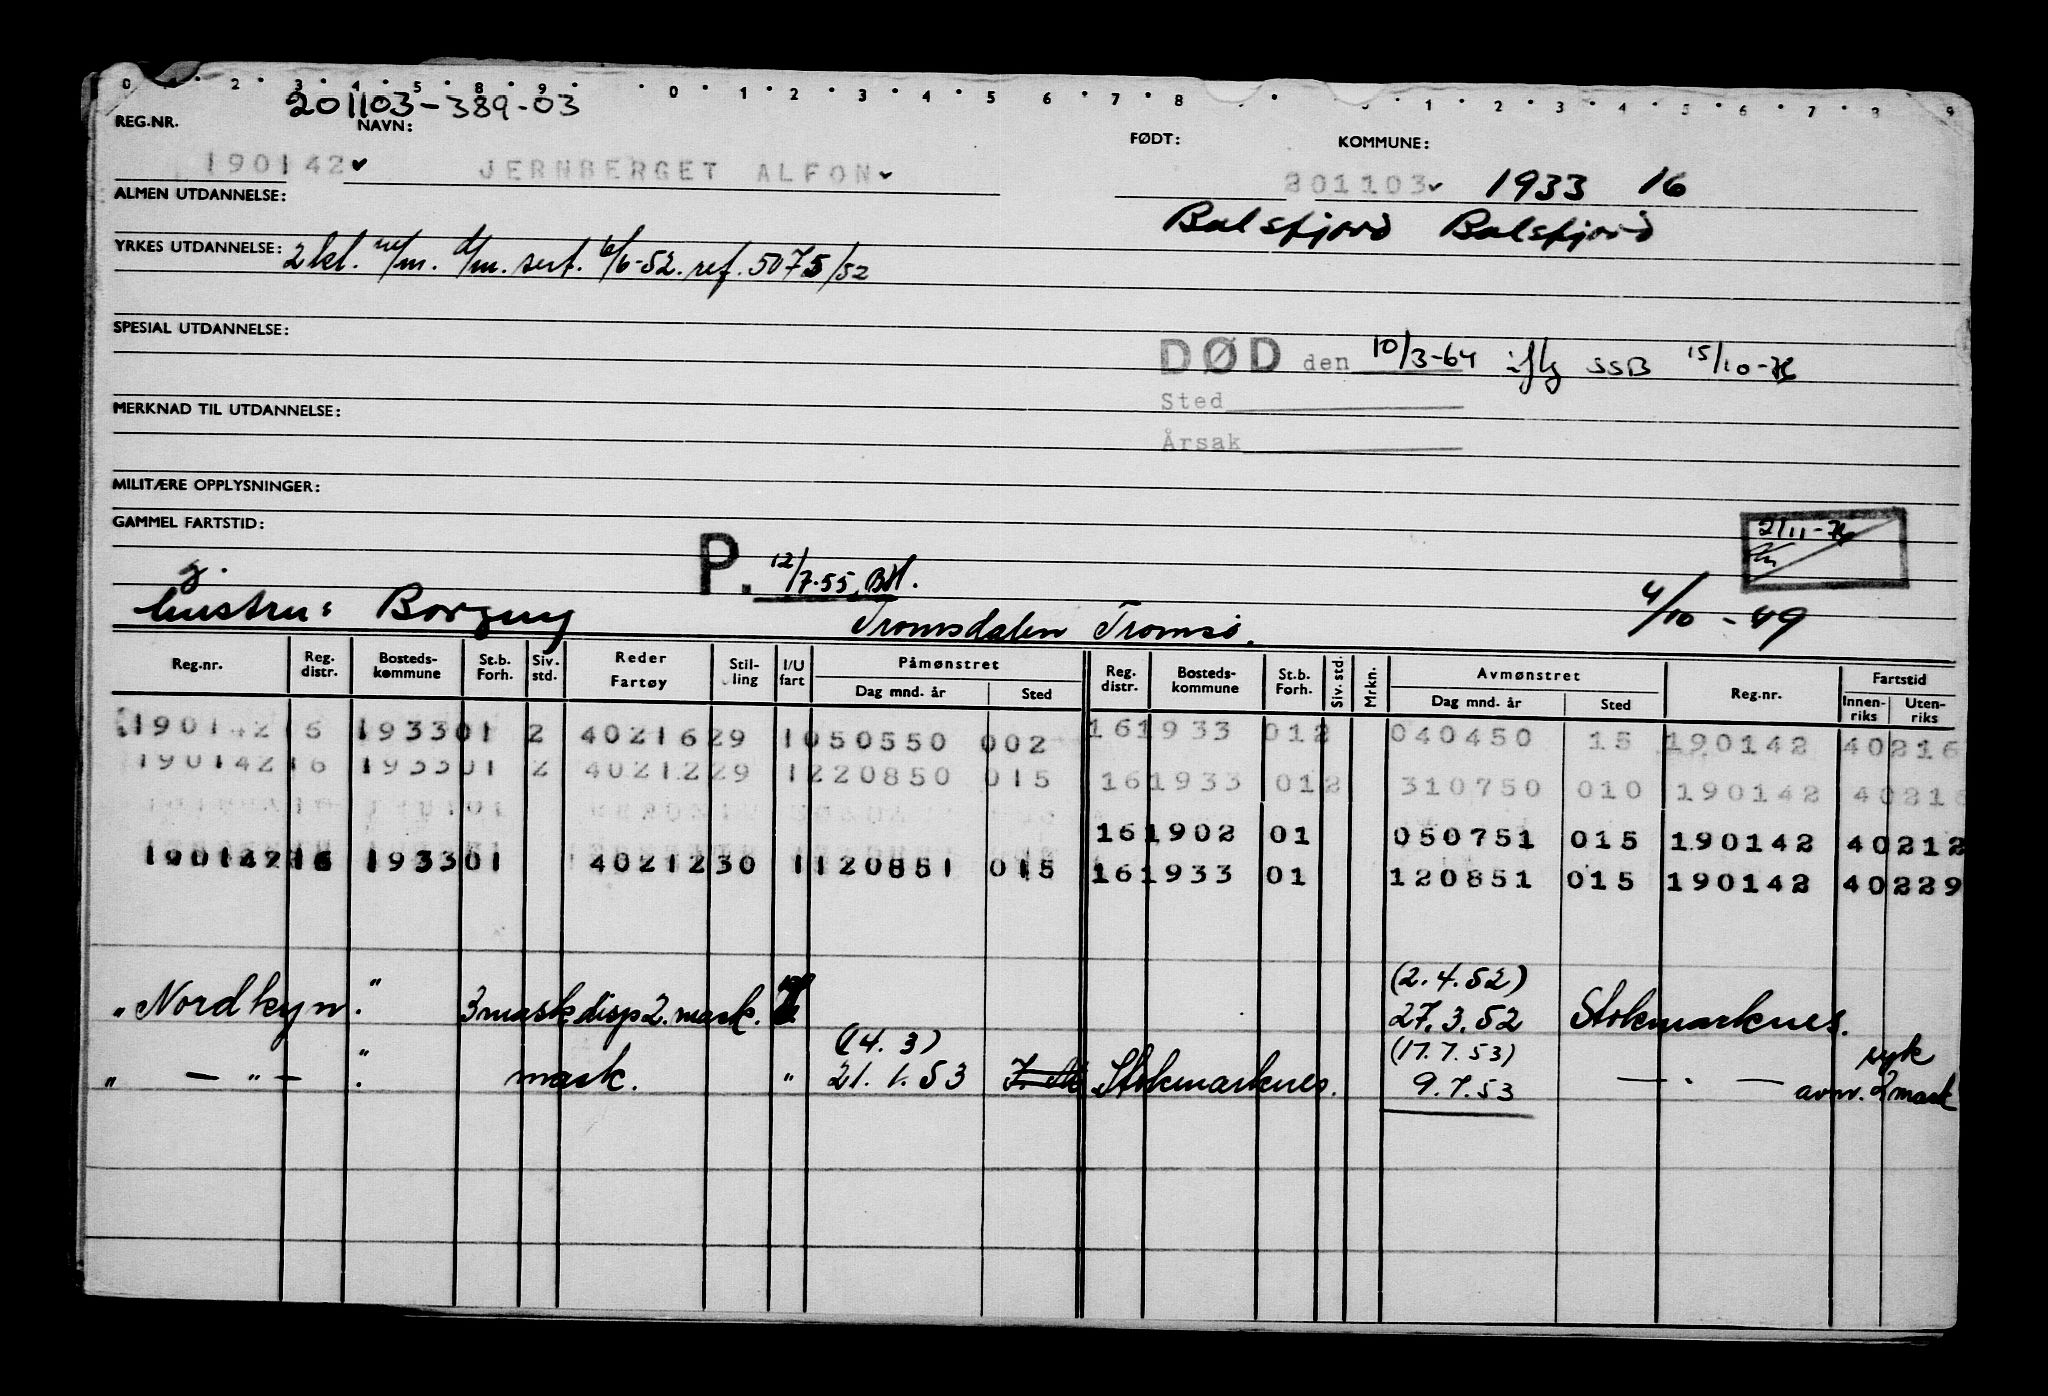 0 2 3 4 5 8 9 0 1 2 3 4 5 6 7 8 1 2 3 4 5 6 7 8 9
201103-389-03
REG.NR. NAVN: FØDT: KOMMUNE:
190142 JERNBERGET ALFON 201103 1933 16
ALMEN UTDANNELSE: Balsfjord Balsfjord
YRKES UTDANNELSE: 2 kl. m/m. d/m. sert. 6/6-52. ref. 5075/52
SPESIAL UTDANNELSE:
DØD den 10/3-64 iflg SSB 15/10-76
Sted
MERKNAD TIL UTDANNELSE:
Årsak
MILITÆRE OPPLYSNINGER:
GAMMEL FARTSTID: 2/11-76
P. 12/7.55, BH.
g.
hustru: Borgny Tromsdalen Tromsø. 4/10-49
Reg.nr. Reg. distr. Bosteds-kommune St.b. Forh. Siv. std. Reder Fartøy Stil-ling I/U fart Påmønstret Dag mnd. år Sted Reg. distr. Bosteds-kommune St.b. Forh. Siv. std. Mrkn. Avmønstret Dag mnd. år Sted Reg.nr. Fartstid Innen-riks Uten-riks
190142 16 1933 01 2 40216 29 1 050550 002 16 1933 01 2 040450 15 190142 40216
190142 16 1933 01 2 40212 29 1 220850 015 16 1933 01 2 310750 010 190142 40216
16 1902 01 050751 015 190142 40212
190142 16 1933 01 40212 30 1 120851 015 16 1933 01 120851 015 190142 40229
(2.4.52)
" Nordkyn. " 3 mask disp 2. mask. 27.3.52 Stokmarknes.
(14.3) (17.7.53) syk
" — " — " mask. " 21.1.53 Stokmarknes. 9.7.53 — " — avm. 2 mask